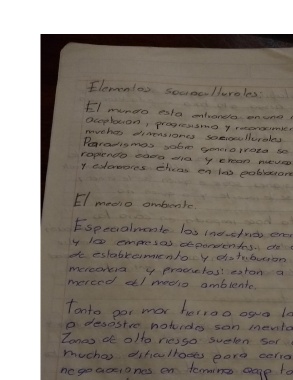 Elementos socioculturales:
El mundo esta entrando en una
aceptacion, progresismo y reconocimien
muchas dimensiones socioculturales.
Paradigmas sobre genero, raza se
rompiendo cada dia y crean nuevas
y estandares eticas en las poblacion
El medio ambiente
Especialmente las industrias
y las empresas dependientes de
de establecimiento y distribucion
mercaderia y productos: estan a
merced del medio ambiente.
Tanto por mar tierra o agua lo
o desastre naturales son
Zonas de alto riesgo suelen ser
muchas dificultades para cerra
negociaciones en terminos